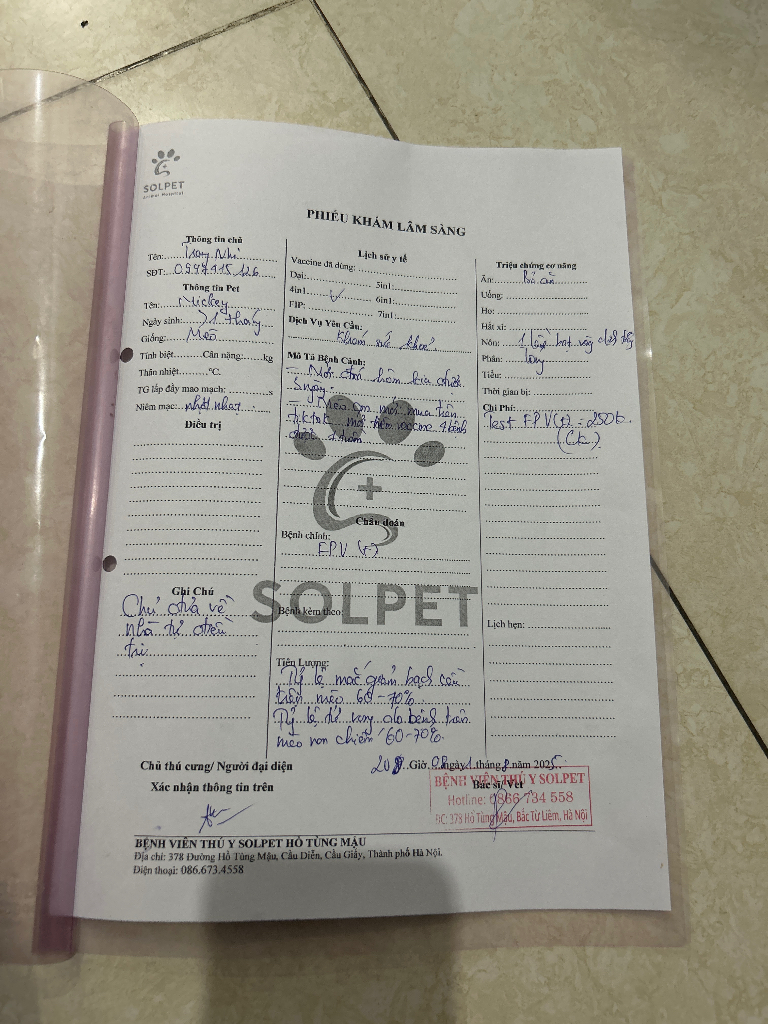 SOLPET
Animal Hospital
PHIẾU KHÁM LÂM SÀNG
Thông tin chủ
Tên: Nhi
SĐT: 0977415126
Thông tin Pet
Tên: Mickey
Ngày sinh: >1 tháng
Giống: Mèo
Tính biệt Cân nặng: kg
Thân nhiệt °C.
TG lấp đầy mao mạch: s
Niêm mạc: nhợt nhạt
Điều trị
Ghi Chú
Chủ đưa về
nhà tự điều
trị.
Lịch sử y tế
Vaccine đã dùng:
Dại: 5in1:
4in1 ✓ 6in1:
FIP: 7in1:
Dịch Vụ Yêu Cầu:
Khám sức khoẻ.
Mô Tả Bệnh Cảnh:
- Mới đón hôm kia được
3 ngày.
- Mèo con mới mua trên
tiktok mới tiêm vaccine 4 bệnh
được
Chẩn đoán
Bệnh chính:
FPV (+)
SOLPET
Bệnh kèm theo:
Tiên Lượng:
Tỷ lệ mắc giảm bạch cầu
trên mèo 60-70%.
Tỷ lệ tử vong do bệnh trên
mèo non chiếm 60-70%.
Triệu chứng cơ năng
Ăn: Bỏ ăn
Uống:
Ho:
Hắt xì:
Nôn: 1 lần
Phân: lỏng
Tiểu:
Thời gian bị:
Chi Phí:
Test FPV(+) - 250k.
(Ck)
Lịch hẹn:
Giờ ngày 1 tháng 8 năm 2025
Chủ thú cưng/ Người đại diện
Xác nhận thông tin trên
Bác sĩ/Vet
BỆNH VIỆN THÚ Y SOLPET
Hotline: 0866 734 558
ĐC: 378 Hồ Tùng Mậu, Bắc Từ Liêm, Hà Nội
BỆNH VIỆN THÚ Y SOLPET HỒ TÙNG MẬU
Địa chỉ: 378 Đường Hồ Tùng Mậu, Cầu Diễn, Cầu Giấy, Thành phố Hà Nội.
Điện thoại: 086.673.4558